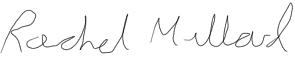 Rachel Millard